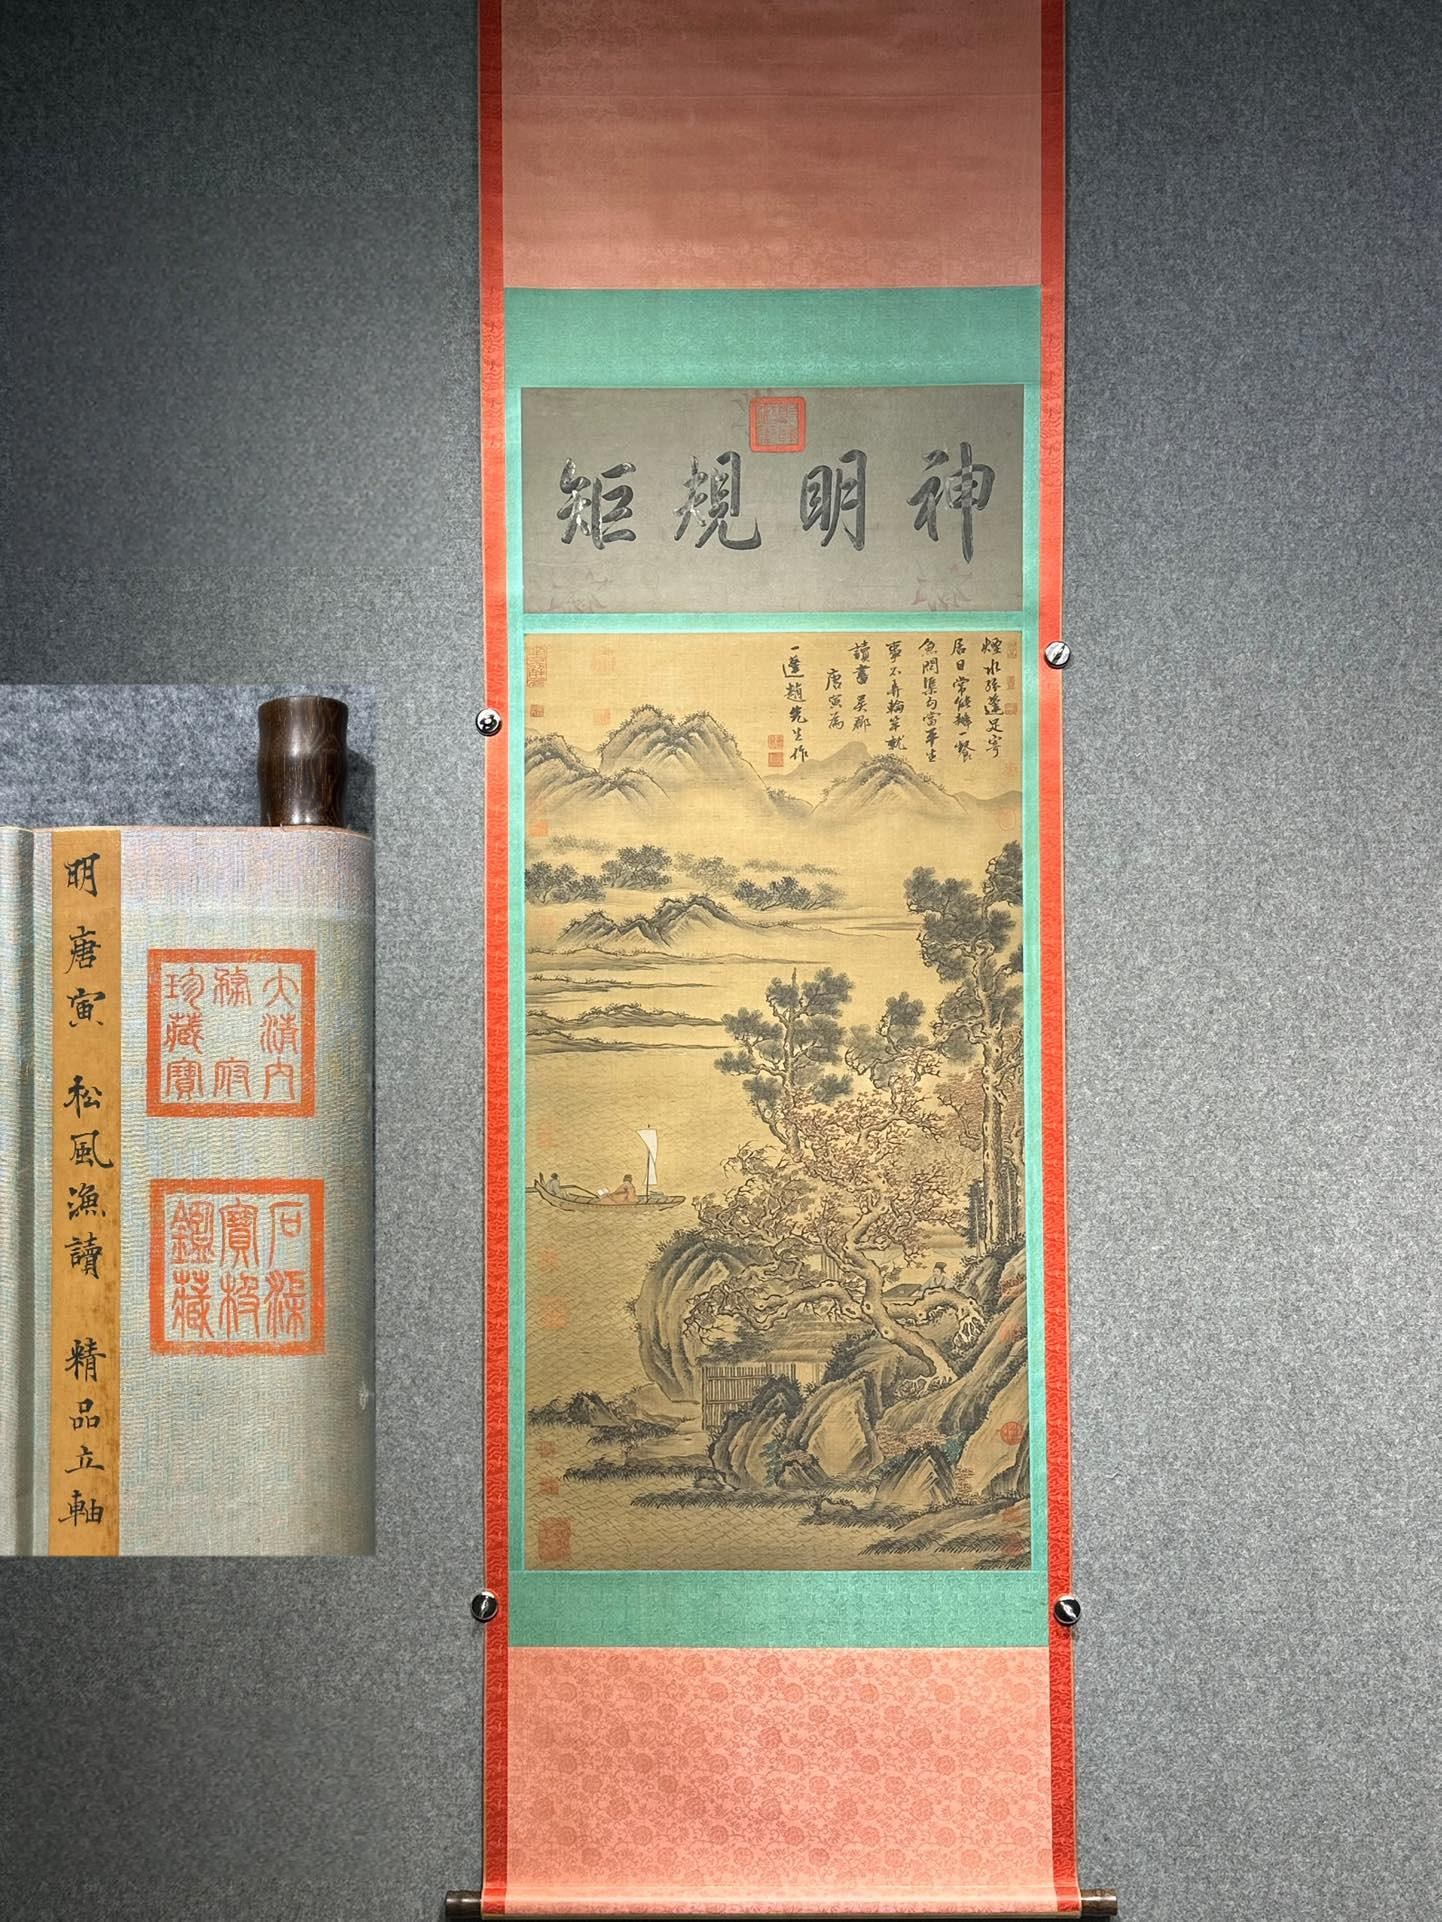 神明規矩
煙水孤蓬足寄
居日常能辦一餐
魚問渠勾當平生
事不弄輪竿就
讀書 吳郡
唐寅為
一蓬趙先生作
明 唐寅 松風漁讀 精品立軸
大清內
務府
珍藏寶
石渠
寶笈
鑑藏